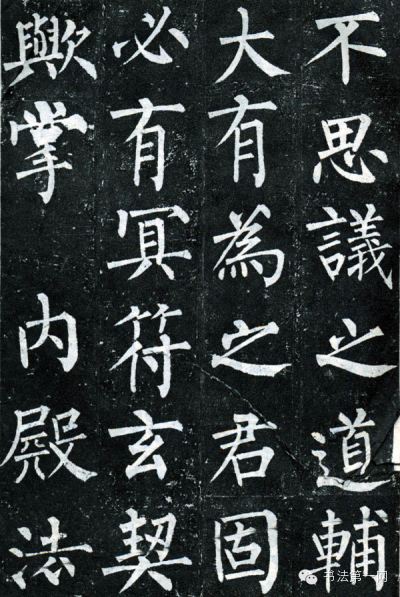 不思議之道輔
大有為之君固
必有冥符玄契
歟掌 内殿法
书法第一网